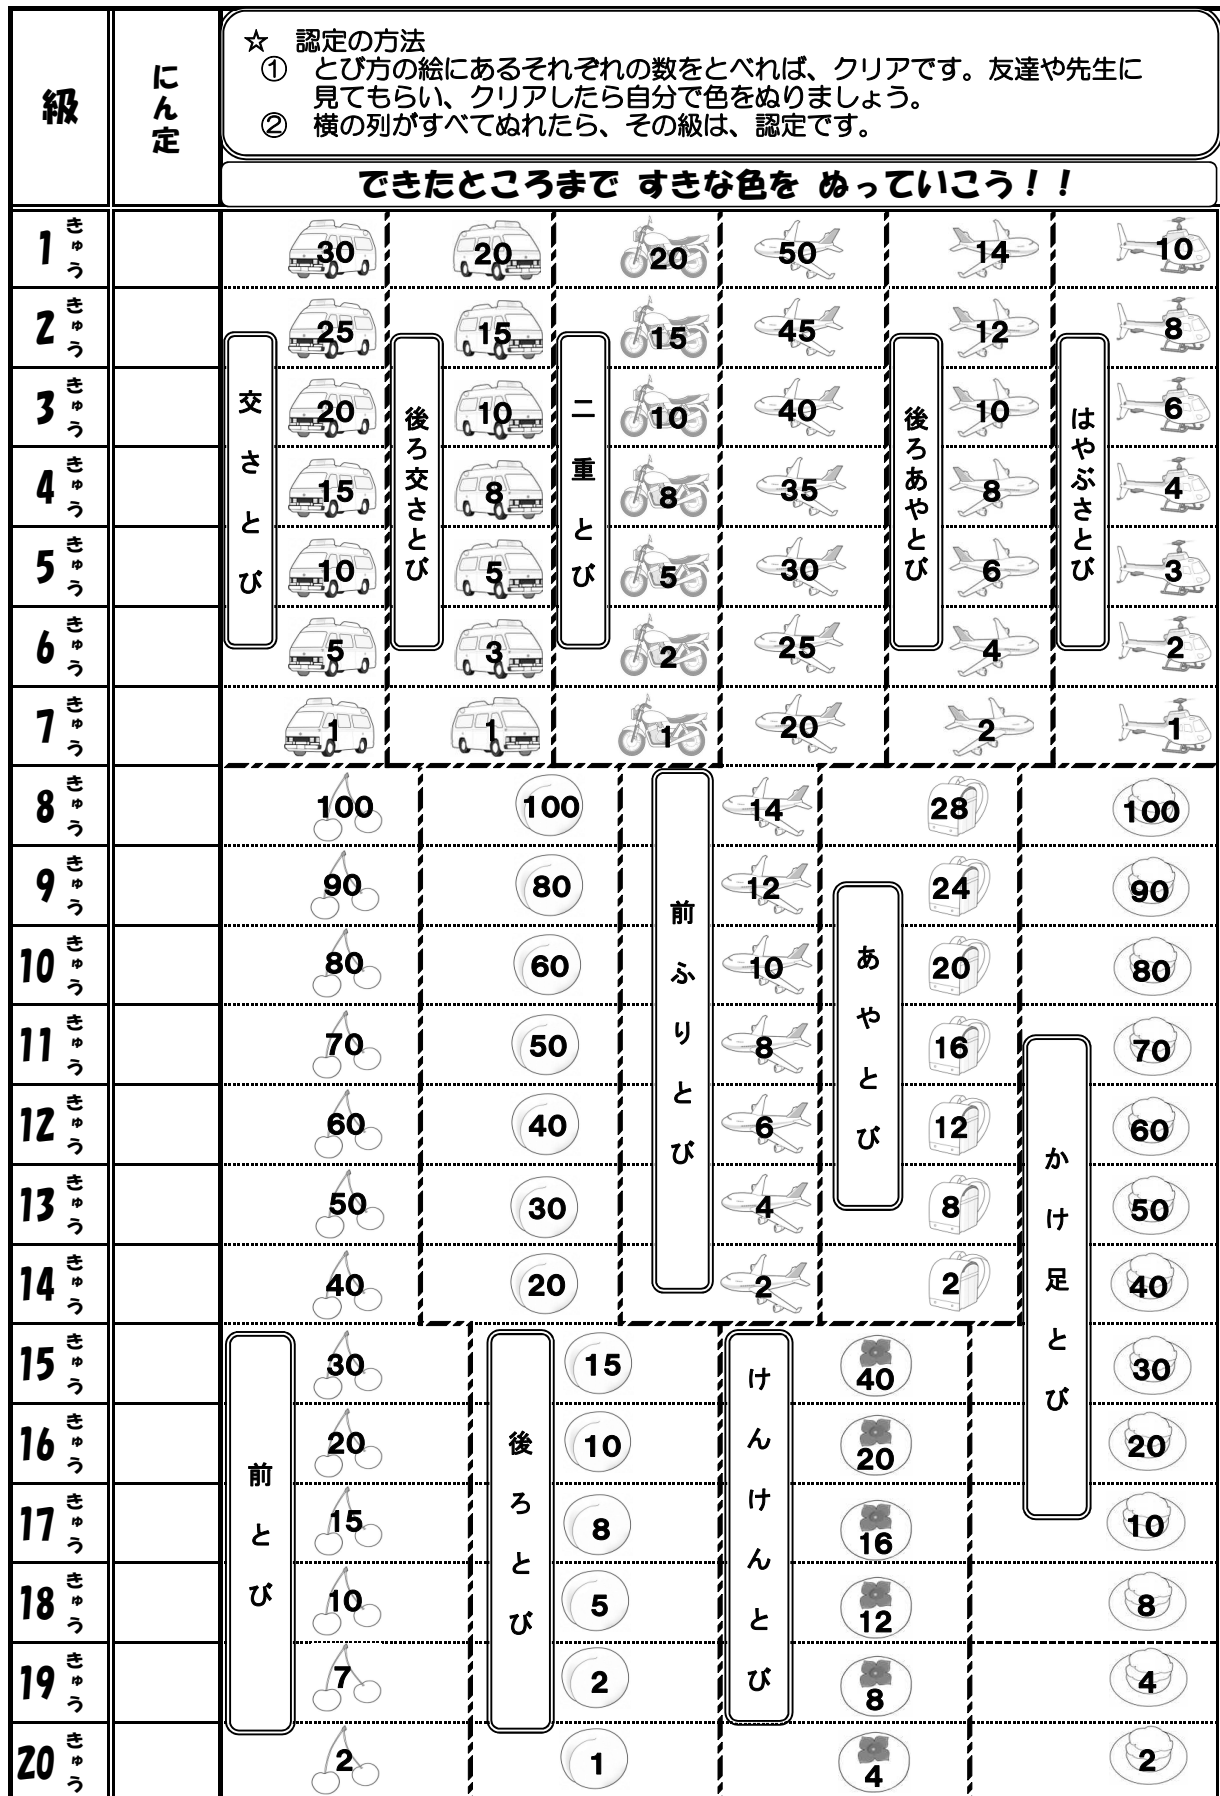 級
にん定
☆　認定の方法
①　とび方の絵にあるそれぞれの数をとべれば、クリアです。友達や先生に
見てもらい、クリアしたら自分で色をぬりましょう。
②　横の列がすべてぬれたら、その級は、認定です。
できたところまで すきな色を ぬっていこう！！
1 きゅう 30 20 20 50 14 10
2 きゅう 25 15 15 45 12 8
3 きゅう 20 10 10 40 10 6
4 きゅう 15 8 8 35 8 4
5 きゅう 10 5 5 30 6 3
6 きゅう 5 3 2 25 4 2
7 きゅう 1 1 1 20 2 1
交さとび
後ろ交さとび
二重とび
後ろあやとび
はやぶさとび
8 きゅう 100 100 14 28 100
9 きゅう 90 80 12 24 90
10 きゅう 80 60 10 20 80
11 きゅう 70 50 8 16 70
12 きゅう 60 40 6 12 60
13 きゅう 50 30 4 8 50
14 きゅう 40 20 2 2 40
前ふりとび
あやとび
かけ足とび
15 きゅう 30 15 40 30
16 きゅう 20 10 20 20
17 きゅう 15 8 16 10
18 きゅう 10 5 12 8
19 きゅう 7 2 8 4
20 きゅう 2 1 4 2
前とび
後ろとび
けんけんとび